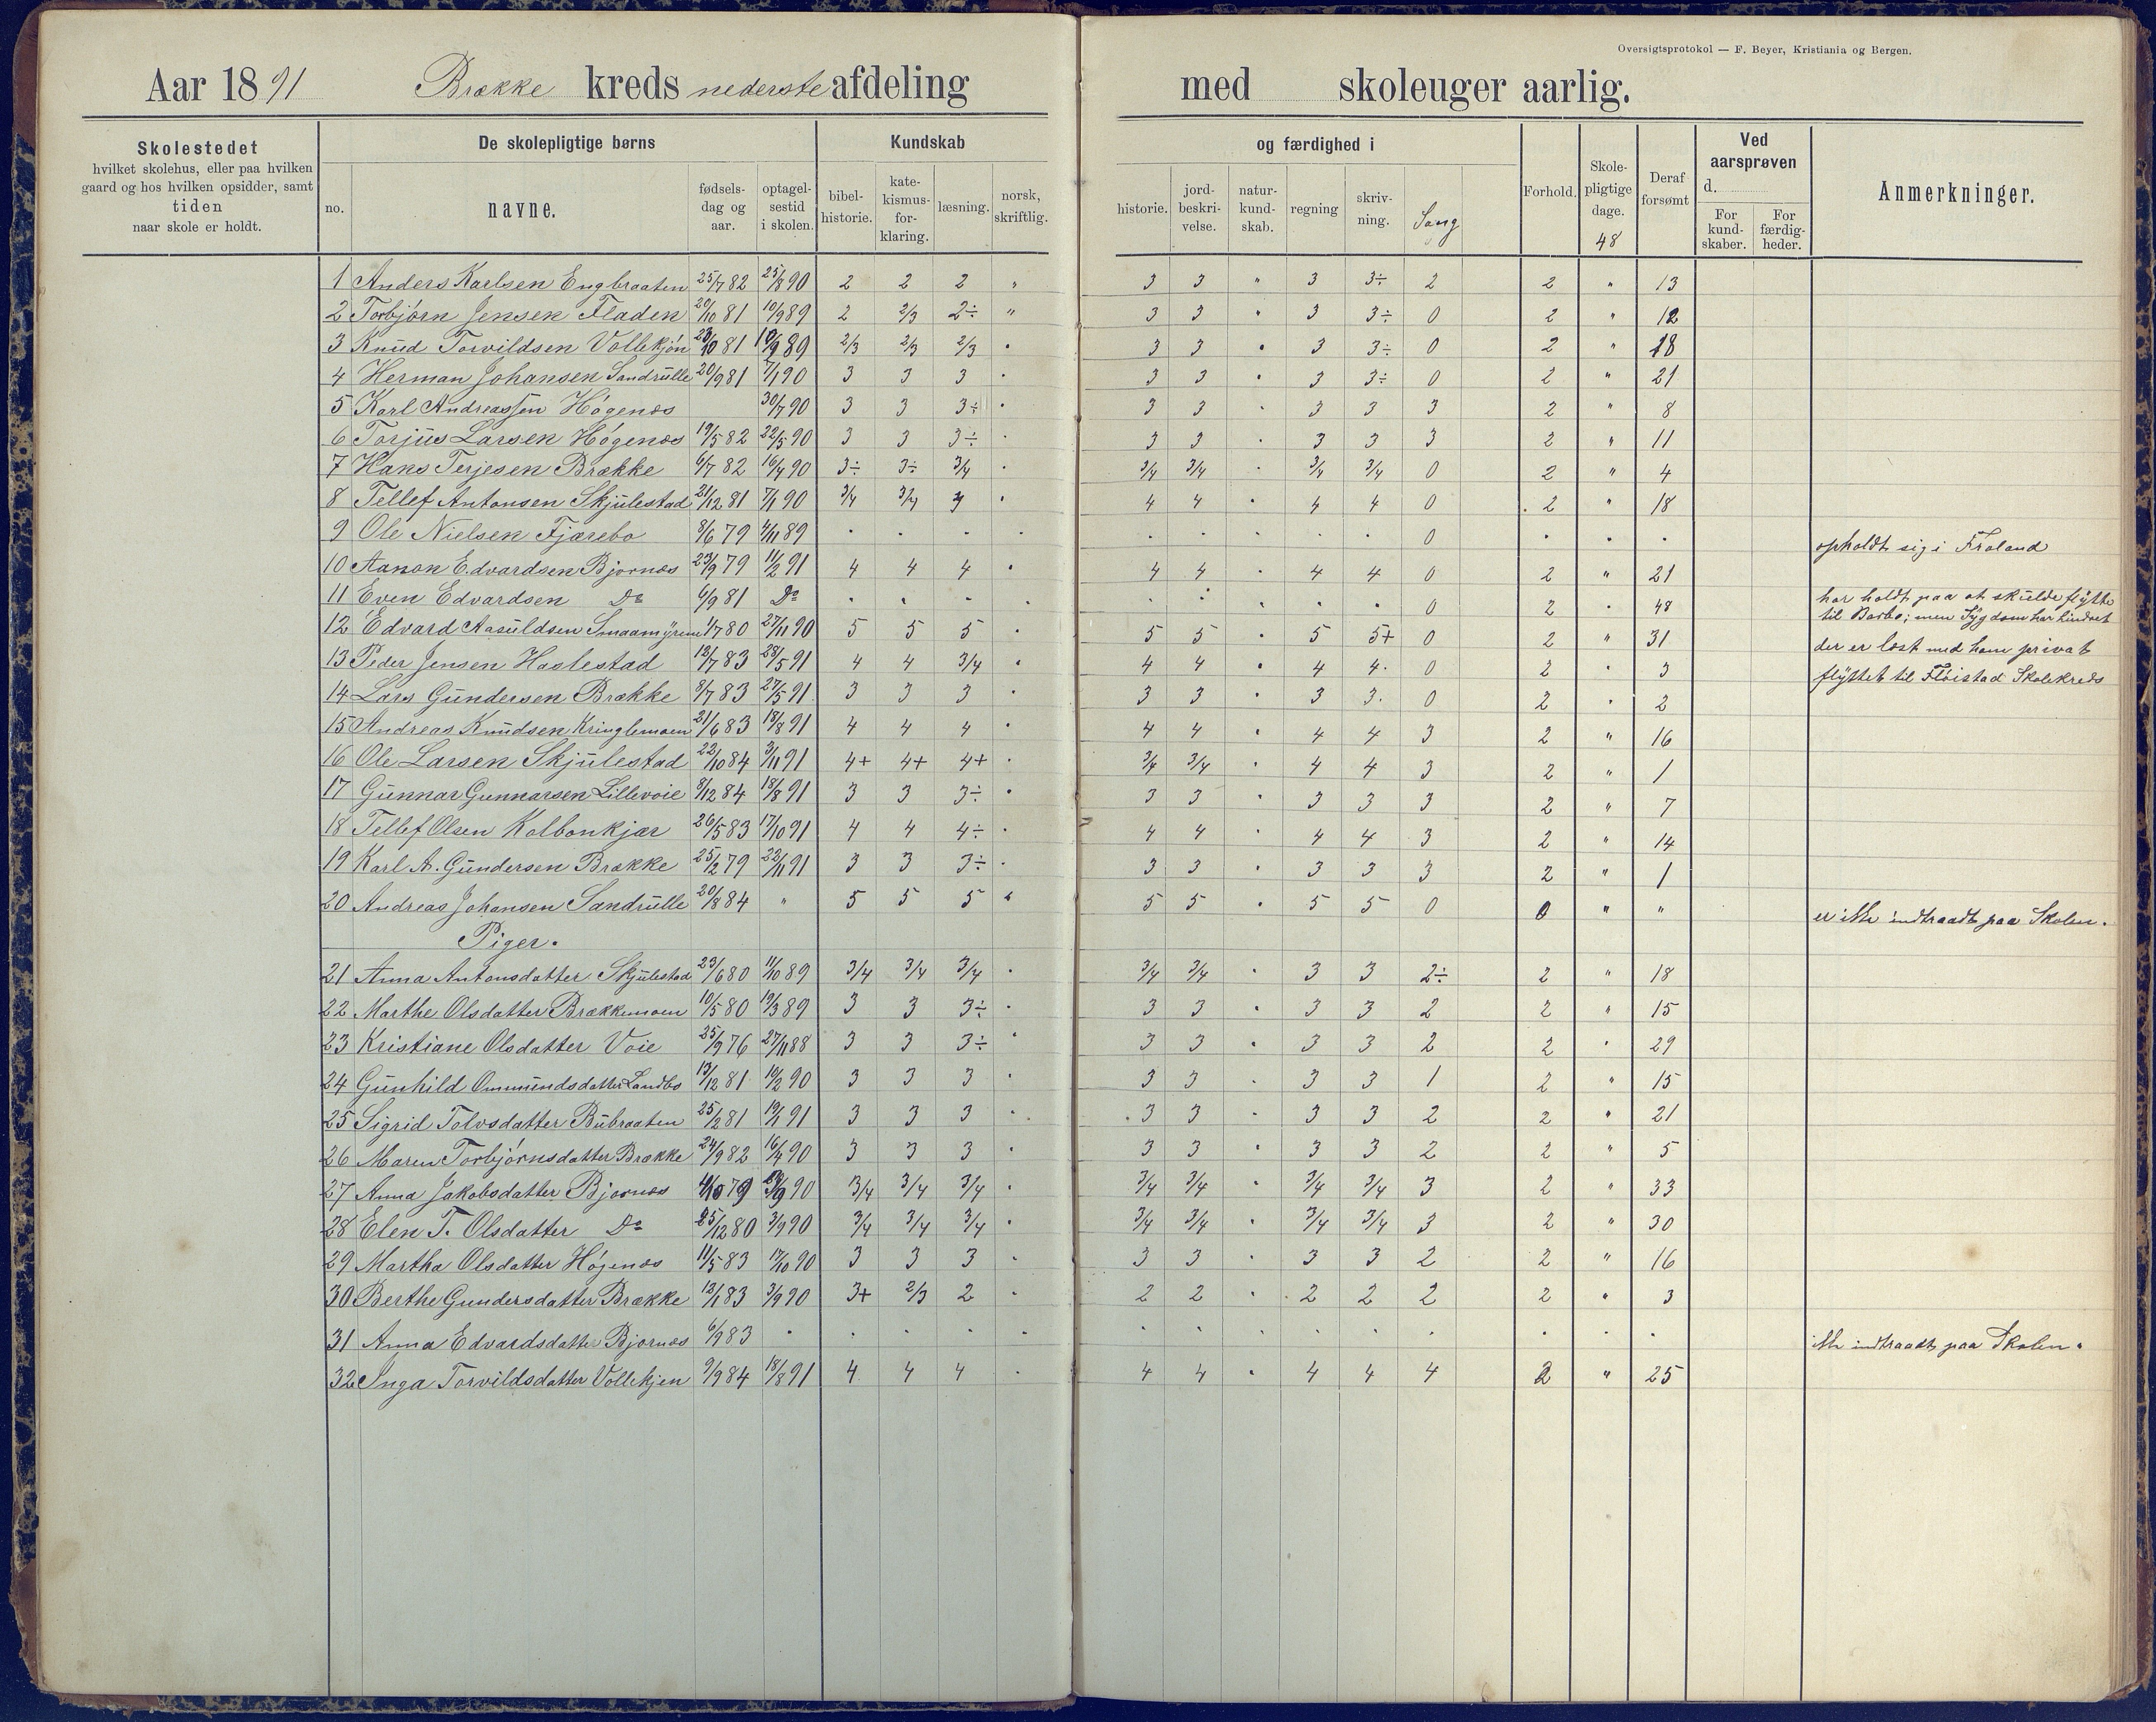 Oversigtsprotokol — F. Beyer, Kristiania og Bergen.
Aar 1891 Brække kreds nederste afdeling med skoleuger aarlig.
Skolestedet
hvilket skolehus, eller paa hvilken
gaard og hos hvilken opsidder, samt
tiden
naar skole er holdt.
De skolepligtige børns
no. navne. fødsels-dag og aar. optagel-sestid i skolen.
Kundskab og færdighed i
bibel-historie. kate-kismus-for-klaring. læsning. norsk, skriftlig. historie. jord-beskri-velse. natur-kund-skab. regning skriv-ning. Sang
Forhold. Skole-pligtige dage. 48 Deraf forsømt
Ved aarsprøven d.
For kund-skaber. For færdig-heder.
Anmerkninger.
1 Anders Karlsen Engbraaten 25/7 82 25/8 90 2 2 2 " 3 3 " 3 3÷ 2 2 " 13
2 Torbjørn Jensen Fladen 20/10 81 10/9 89 2 2/3 2÷ " 3 3 " 3 3÷ 0 2 " 12
3 Knud Torvildsen Vollekjøn 23/10 81 10/9 89 2/3 2/3 2/3 " 3 3 " 3 3÷ 0 2 " 18
4 Herman Johansen Sandrulle 20/9 81 7/1 90 3 3 3 " 3 3 " 3 3÷ 0 2 " 21
5 Karl Andreassen Høgenæs 30/7 90 3 3 3÷ " 3 3 " 3 3 3 2 " 8
6 Torjus Larsen Høgenæs 19/5 82 22/5 90 3 3 3÷ " 3 3 " 3 3 3 2 " 11
7 Hans Terjesen Brække 6/7 82 16/4 90 3÷ 3÷ 3/4 " 3/4 3/4 " 3/4 3/4 0 2 " 4
8 Tellef Antonsen Skjulestad 21/12 81 7/1 90 3/4 3/4 4 " 4 4 " 4 4 0 2 " 18
9 Ole Nielsen Fjærebo 8/6 79 4/11 89 " " " " " " " " " 0 " " " opholdt sig i Froland
10 Aanon Edvardsen Bjornæs 23/9 79 11/2 91 4 4 4 " 4 4 " 4 4 0 2 " 21
11 Even Edvardsen Do 6/9 81 Do " " " " " " " " " 0 2 " 48 har holdt paa at skulde flytte
til Barbo; men Sygdom har hindret
12 Edvard Aasuldsen Smaamyrene 1/7 80 27/11 90 5 5 5 " 5 5 " 5 5+ 0 2 " 31 der er læst med ham privat
13 Peder Jensen Haslestad 12/7 83 28/5 91 4 4 3/4 " 4 4 " 4 4 0 2 " 3 flyttet til Fløistad Skolekreds
14 Lars Gundersen Brække 8/7 83 27/5 91 3 3 3 " 3 3 " 3 3 0 2 " 2
15 Andreas Knudsen Kringlemoen 21/6 83 18/8 91 4 4 4 " 4 4 " 4 4 3 2 " 16
16 Ole Larsen Skjulestad 22/10 84 3/11 91 4+ 4+ 4+ " 3/4 3/4 " 4 4 3 2 " 1
17 Gunnar Gunnarsen Lillevoie 8/12 84 18/8 91 3 3 3÷ " 3 3 " 3 3 3 2 " 7
18 Tellef Olsen Kolbonkjær 26/5 83 17/10 91 4 4 4÷ " 4 4 " 4 4 3 2 " 14
19 Karl A. Gundersen Brække 25/2 79 22/11 91 3 3 3÷ " 3 3 " 3 3 3 2 " 1
20 Andreas Johansen Sandrulle 20/8 84 " 5 5 5 " 5 5 " 5 5 0 0 " " er ikke indtraadt paa Skolen.
Piger.
21 Anna Antonsdatter Skjulestad 23/6 80 11/10 89 3/4 3/4 3/4 " 3/4 3/4 " 3 3 2÷ 2 " 18
22 Marthe Olsdatter Brækkemoen 10/5 80 19/3 89 3 3 3÷ " 3 3 " 3 3 2 2 " 15
23 Kristiane Olsdatter Voie 25/9 76 27/11 88 3 3 3÷ " 3 3 " 3 3 2 2 " 29
24 Gunhild Ommundsdatter Landbo 13/12 81 19/2 90 3 3 3 " 3 3 " 3 3 1 2 " 15
25 Sigrid Tolvsdatter Bubraaten 25/2 81 19/1 91 3 3 3 " 3 3 " 3 3 2 2 " 21
26 Maren Torbjørnsdatter Brække 24/9 82 16/4 90 3 3 3 " 3 3 " 3 3 2 2 " 5
27 Anna Jakobsdatter Bjornæs 4/10 79 90 3/4 3/4 3/4 " 3/4 3/4 " 3/4 3/4 3 2 " 33
28 Elen T. Olsdatter Do 25/12 80 3/9 90 3/4 3/4 3/4 " 3/4 3/4 " 3/4 3/4 3 2 " 30
29 Martha Olsdatter Høgenæs 11/5 83 17/10 90 3 3 3 " 3 3 " 3 3 2 2 " 16
30 Berthe Gundersdatter Brække 12/1 83 3/9 90 3+ 2/3 2 " 2 2 " 2 2 2 2 " 3
31 Anna Edvardsdatter Bjornæs 6/9 83 " " " " " " " " " " " " " " ikke indtraadt paa Skolen.
32 Inga Torvildsdatter Vollekjen 9/9 84 18/8 91 4 4 4 " 4 4 " 4 4 4 2 " 25